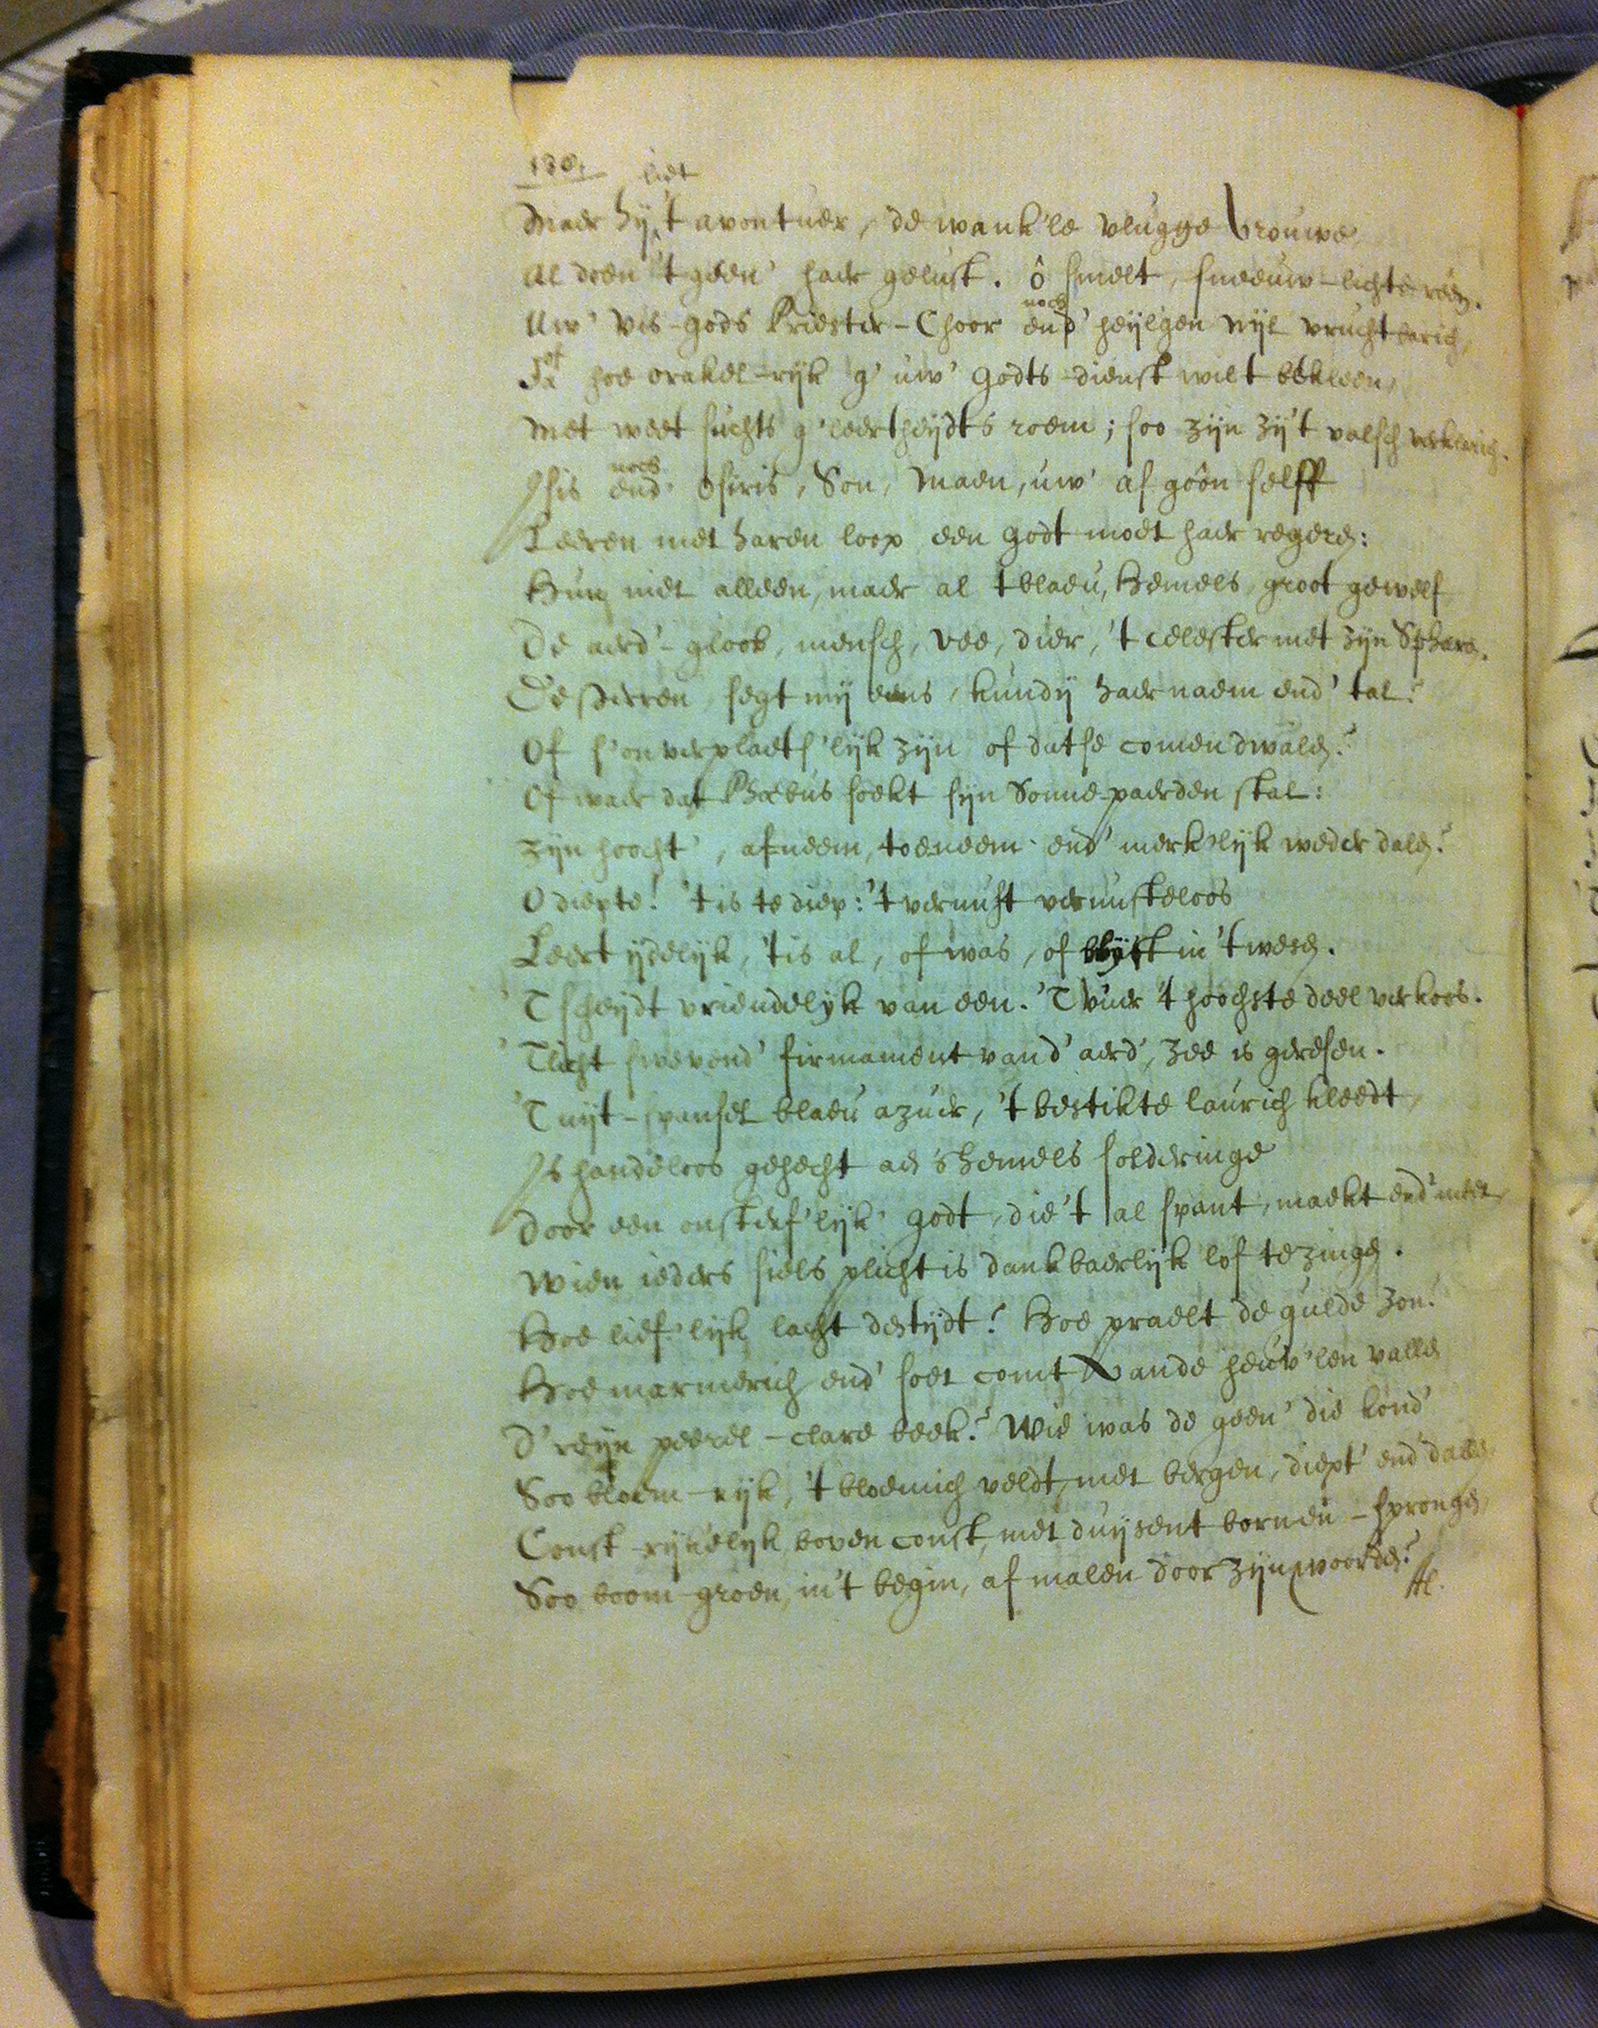 130.
liet
Maer hy 't avontuer, de wank'le vlugge vrouwe,
Al doen 't geen' haer gelust. ô smelt, sneeuw-lichte reen.
Uw' Vis-gods Priester-Choor end' heyligen Nyl vruchtbarich,
noch
of
Ja hoe orakel-ryk g' uw' Godts-dienst wilt bekleen,
Met weet suchts g'leertheydts roem; soo zyn zy't valsch verklarich.
noch
Isis end' Osiris, Son, Maen, uw' af goôn selff
Leeren met haren loop een Godt moet haer regeren:
Hun niet alleen, maer al 't blaeu, Hemels, groot gewelf
De aerd'-gloob, mensch, vee, dier, 't celester met zyn Sphere.
De sterren segt my eens, kundy haer naem end' tal?
Of s'onverplaets'lyk zyn of datse comen dwalen?
Of waer dat Phœbus soekt syn Sonne-paerden stal:
Zyn hoocht', afneem, toeneem end' merk'lyk weder dalen?
O diepte! 't is te diep: 't vernuft vernufteloos
Leert ydelyk, 't is al, of was, of blyft in 't wesen.
'T scheydt vriendelyk van een. 'T vuer 't hoochste deel verkoos.
'T licht swevend' firmament van d' aerd', zee is geresen.
'T uyt-spansel blaeu azuer, 't bestikte laurich kleedt,
Is handeloos gehecht aen 's hemels solderinge
Door een onsterf'lyk Godt, die 't al spant, maekt end' meet,
Wien ieders siels plicht is dankbaerlyk lof te zingen.
Hoe lief'lyk lacht de tydt? Hoe praelt de gulde Zon?
Hoe marmerich end' soet comt vande heuv'len vallen
D' reyn peerel-clare beek? Wie was de geen' die kond'
Soo bloem-ryk, 't bloemich veldt, met bergen, diept' end' dallen
Const-rykelyk boven const, met duysent bornen-sprongen,
Soo boom-groen, in 't begin, af malen door zyn woorden?